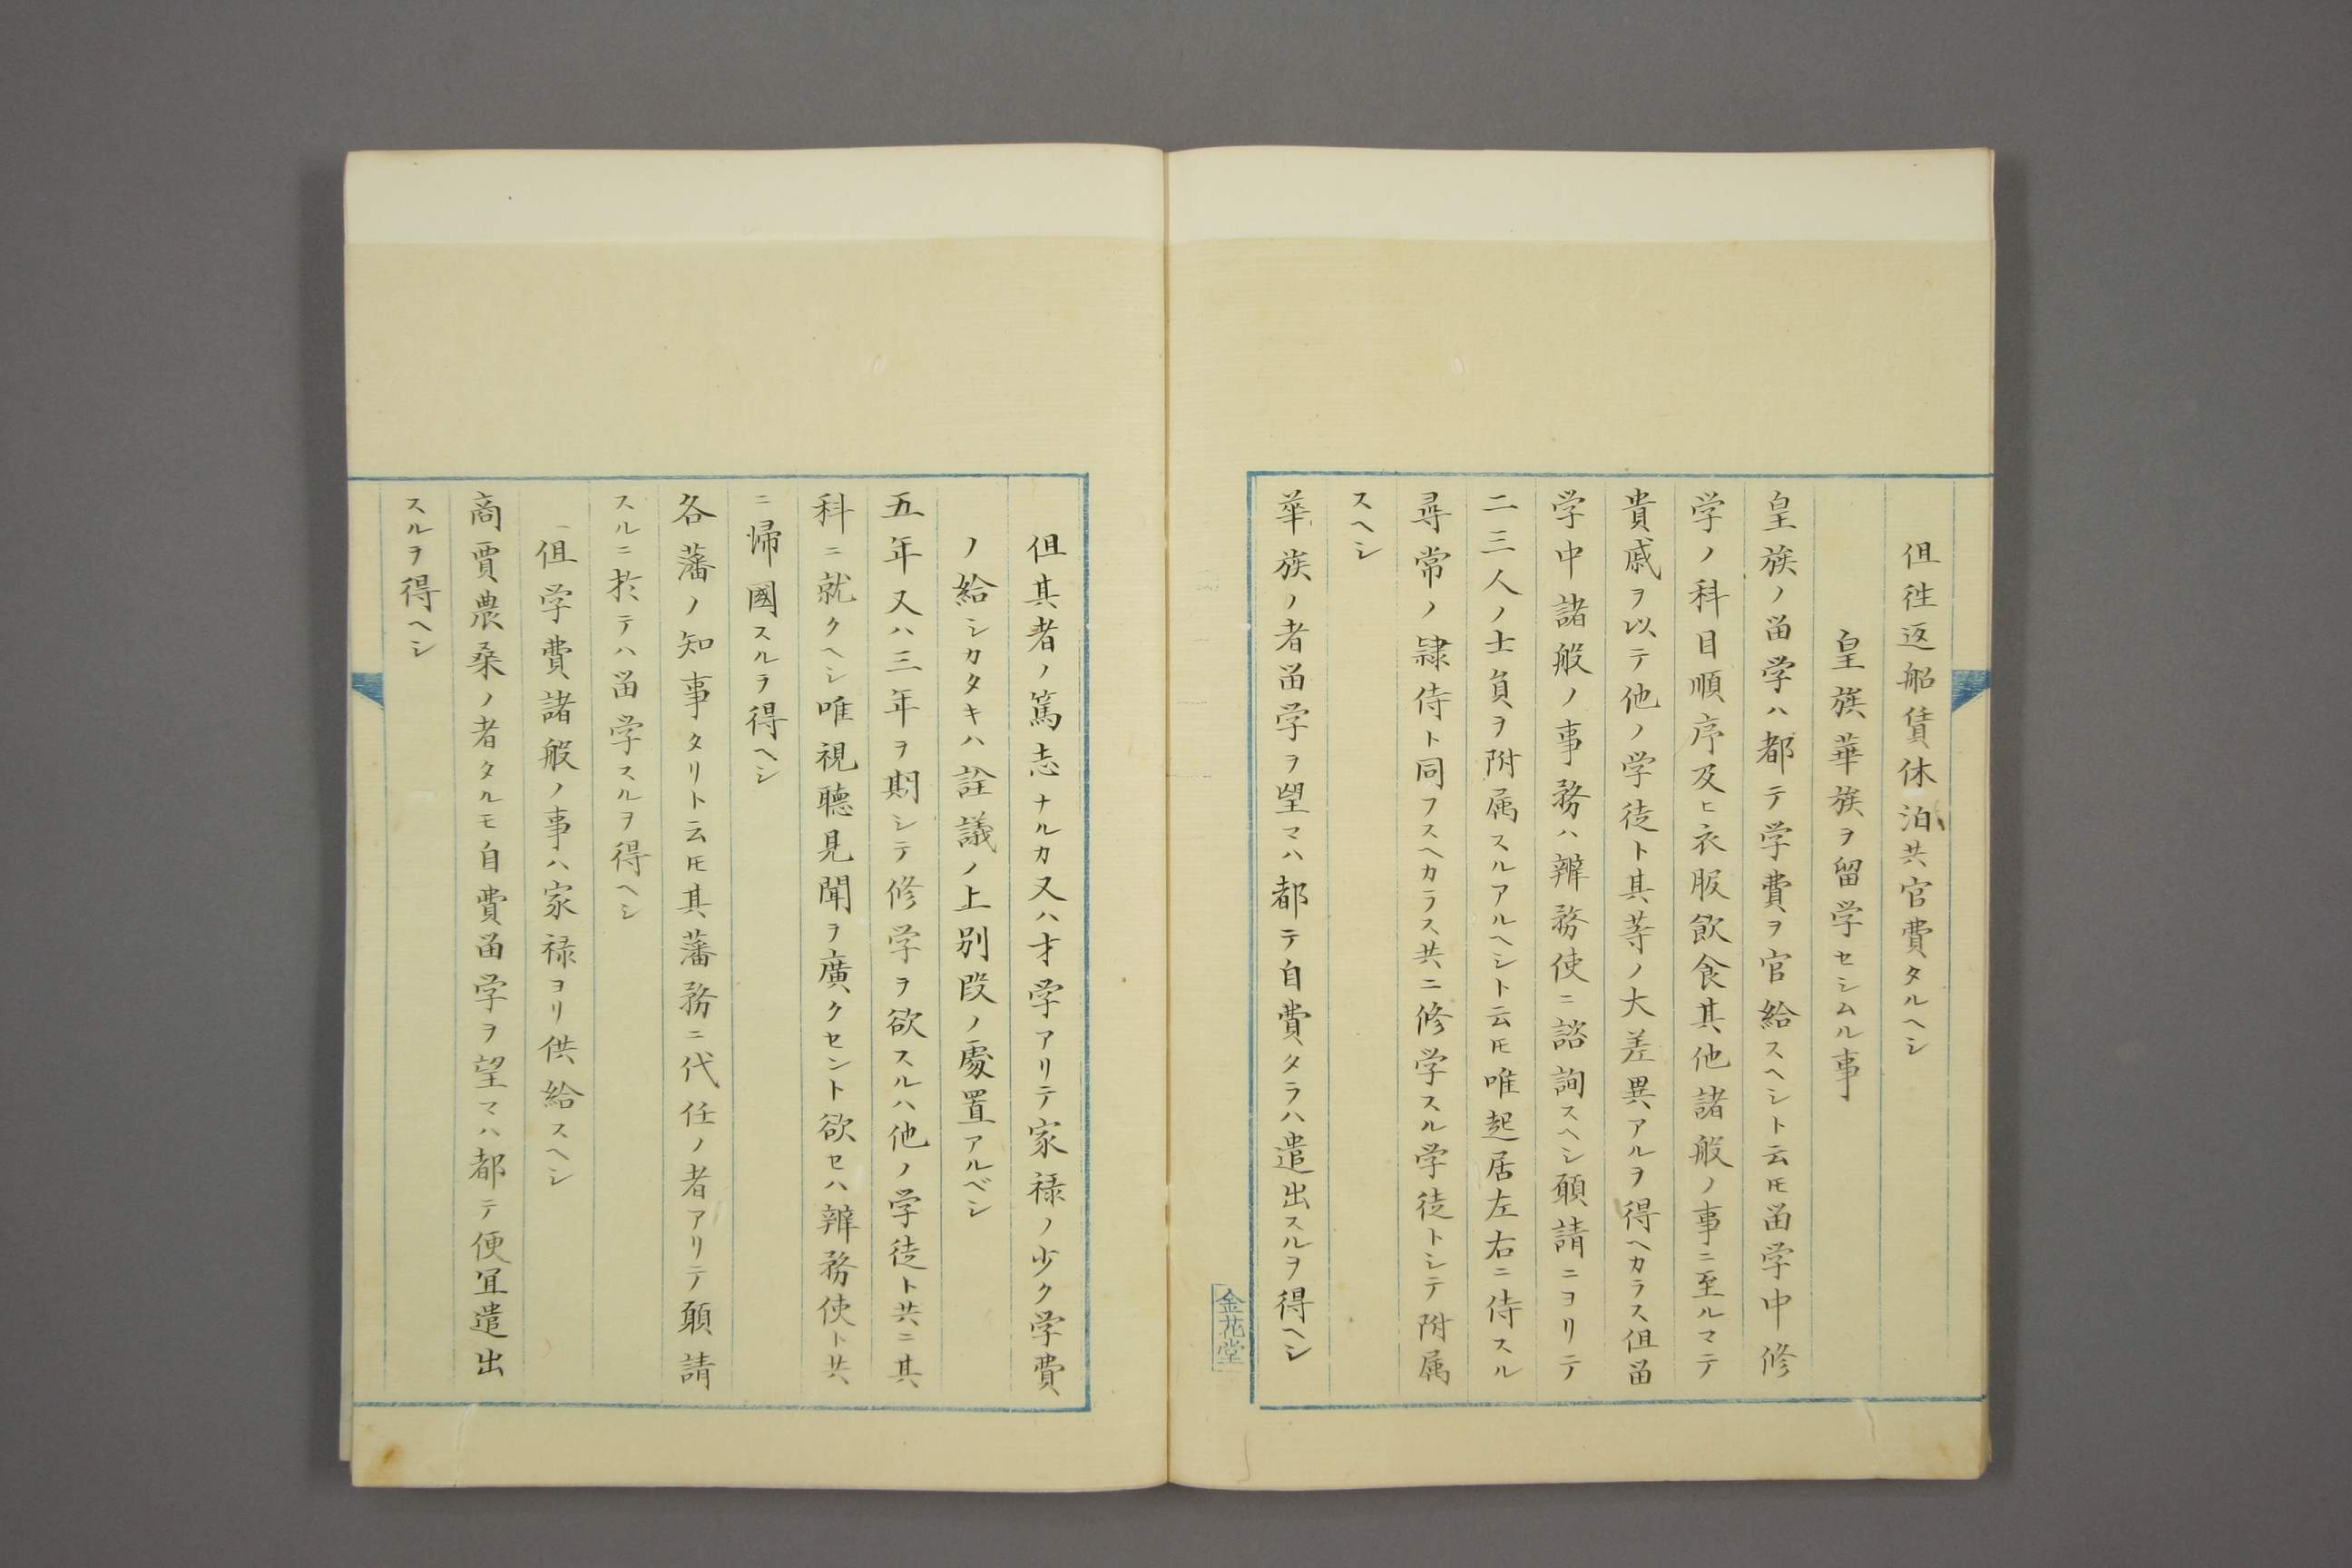 但徃返船賃休泊共官費タルヘシ
皇族華族ヲ留学セシムル事
皇族ノ畄学ハ都テ学費ヲ官給スヘシト云𪜈畄学中修
学ノ科目順序及ヒ衣服飲食其他諸般ノ事ニ至ルマテ
貴戚ヲ以テ他ノ学徒ト其等ノ大差異アルヲ得ヘカラス但畄
学中諸般ノ事務ハ辨務使ニ諮詢スヘシ願請ニヨリテ
二三人ノ士負ヲ附属スルアルヘシト云𪜈唯起居左右ニ侍スル
尋常ノ隷侍ト同フスヘカラス共ニ修学スル学徒トシテ附属
スヘシ
華族ノ者畄学ヲ望マハ都テ自費タラハ遣出スルヲ得ヘシ
金花堂
但其者ノ篤志ナルカ又ハ才学アリテ家禄ノ少ク学費
ノ給シカタキハ詮議ノ上別段ノ處置アルベシ
五年又ハ三年ヲ期シテ修学ヲ欲スルハ他ノ学徒ト共ニ其
科ニ就クヘシ唯視聴見聞ヲ廣クセント欲セハ辨務使ト共
ニ帰國スルヲ得ヘシ
各藩ノ知事タリト云𪜈其藩務ニ代任ノ者アリテ願請
スルニ於テハ畄学スルヲ得ヘシ
但学費諸般ノ事ハ家禄ヨリ供給スヘシ
商賈農桑ノ者タルモ自費畄学ヲ望マハ都テ便宜遣出
スルヲ得ヘシ